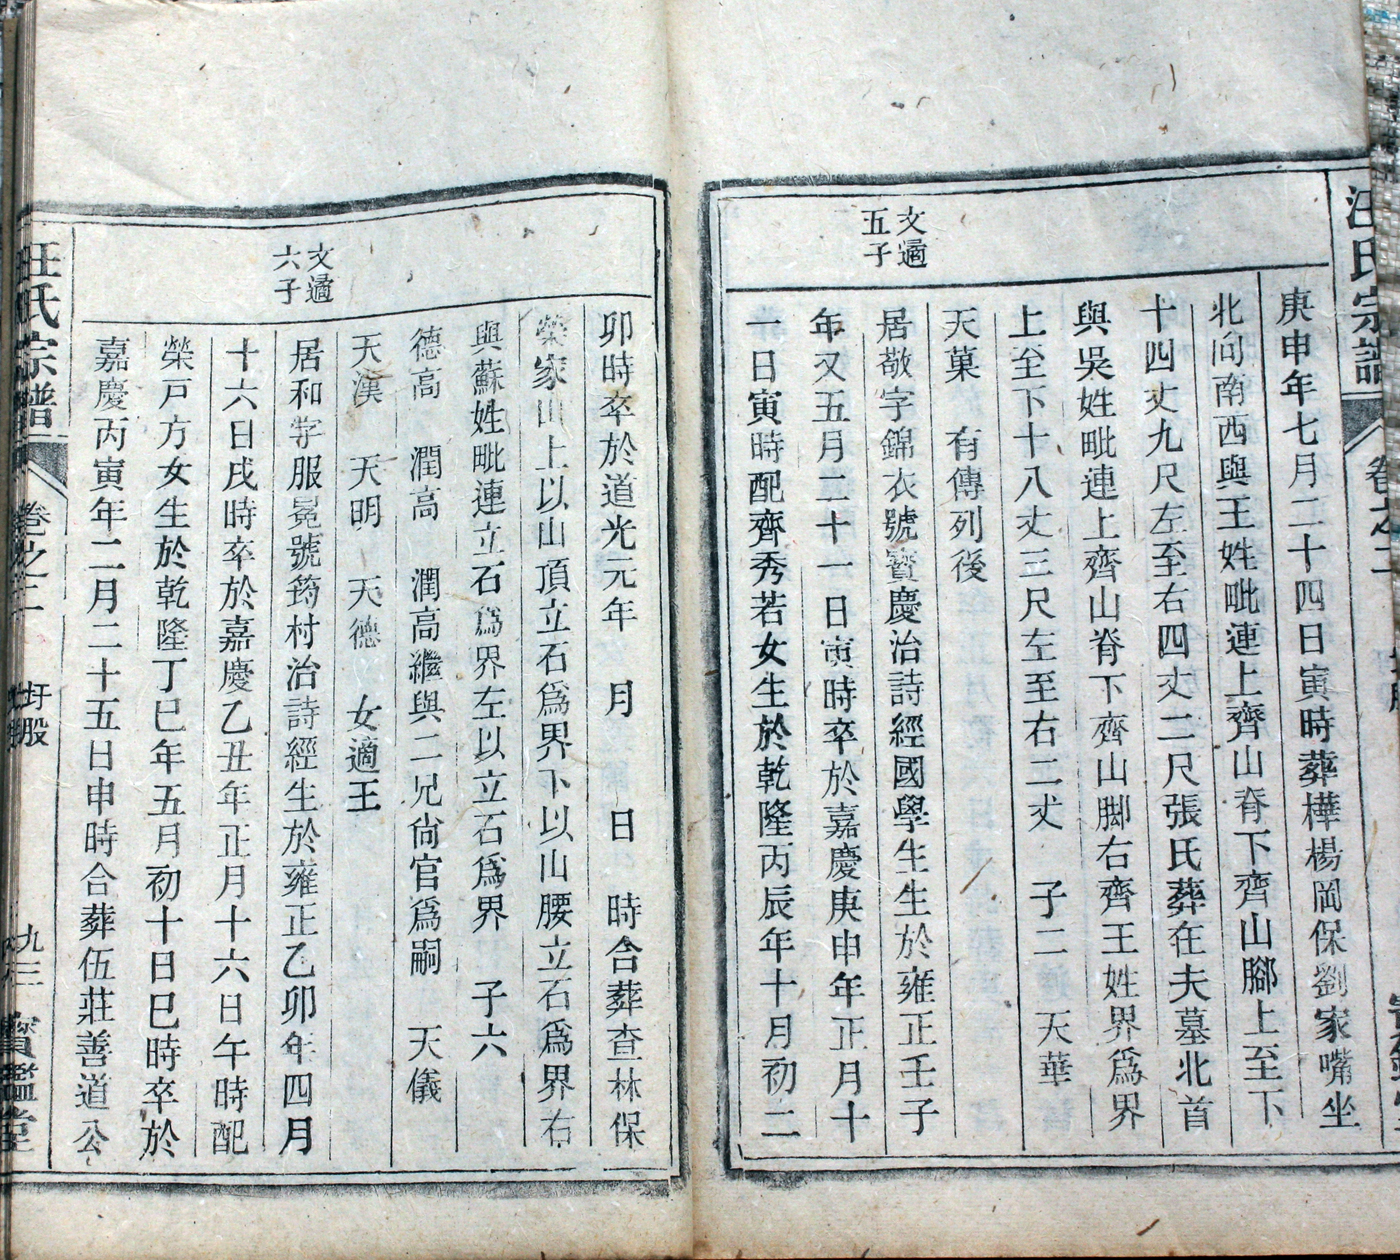 汪氏宗譜
卷之二
庚申年七月二十四日寅時葬樺楊岡保劉家嘴坐
北向南西與王姓毗連上齊山脊下齊山腳上至下
十四丈九尺左至右四丈二尺張氏葬在夫墓北首
與吳姓毗連上齊山脊下齊山脚右齊王姓界爲界
上至下十八丈三尺左至右二丈 子二 天華
天菓 有傳列後
文遹
五子
居敬字錦衣號寳慶治詩經國學生生於雍正壬子
年又五月二十一日寅時卒於嘉慶庚申年正月十
一日寅時配齊秀若女生於乾隆丙辰年十月初二
卯時卒於道光元年 月 日 時合葬查林保
榮家山上以山頂立石爲界下以山腰立石爲界右
與蘇姓毗連立石爲界左以立石爲界 子六
德高 潤高 潤高繼與二兄尙官爲嗣 天儀
天漢 天明 天德 女適王
文遹
六子
居和字服冕號筠村治詩經生於雍正乙卯年四月
十六日戌時卒於嘉慶乙丑年正月十六日午時配
榮戸方女生於乾隆丁巳年五月初十日巳時卒於
嘉慶丙寅年二月二十五日申時合葬伍莊善道公
汪氏宗譜
卷之二
圩股
九三
寶鑑堂